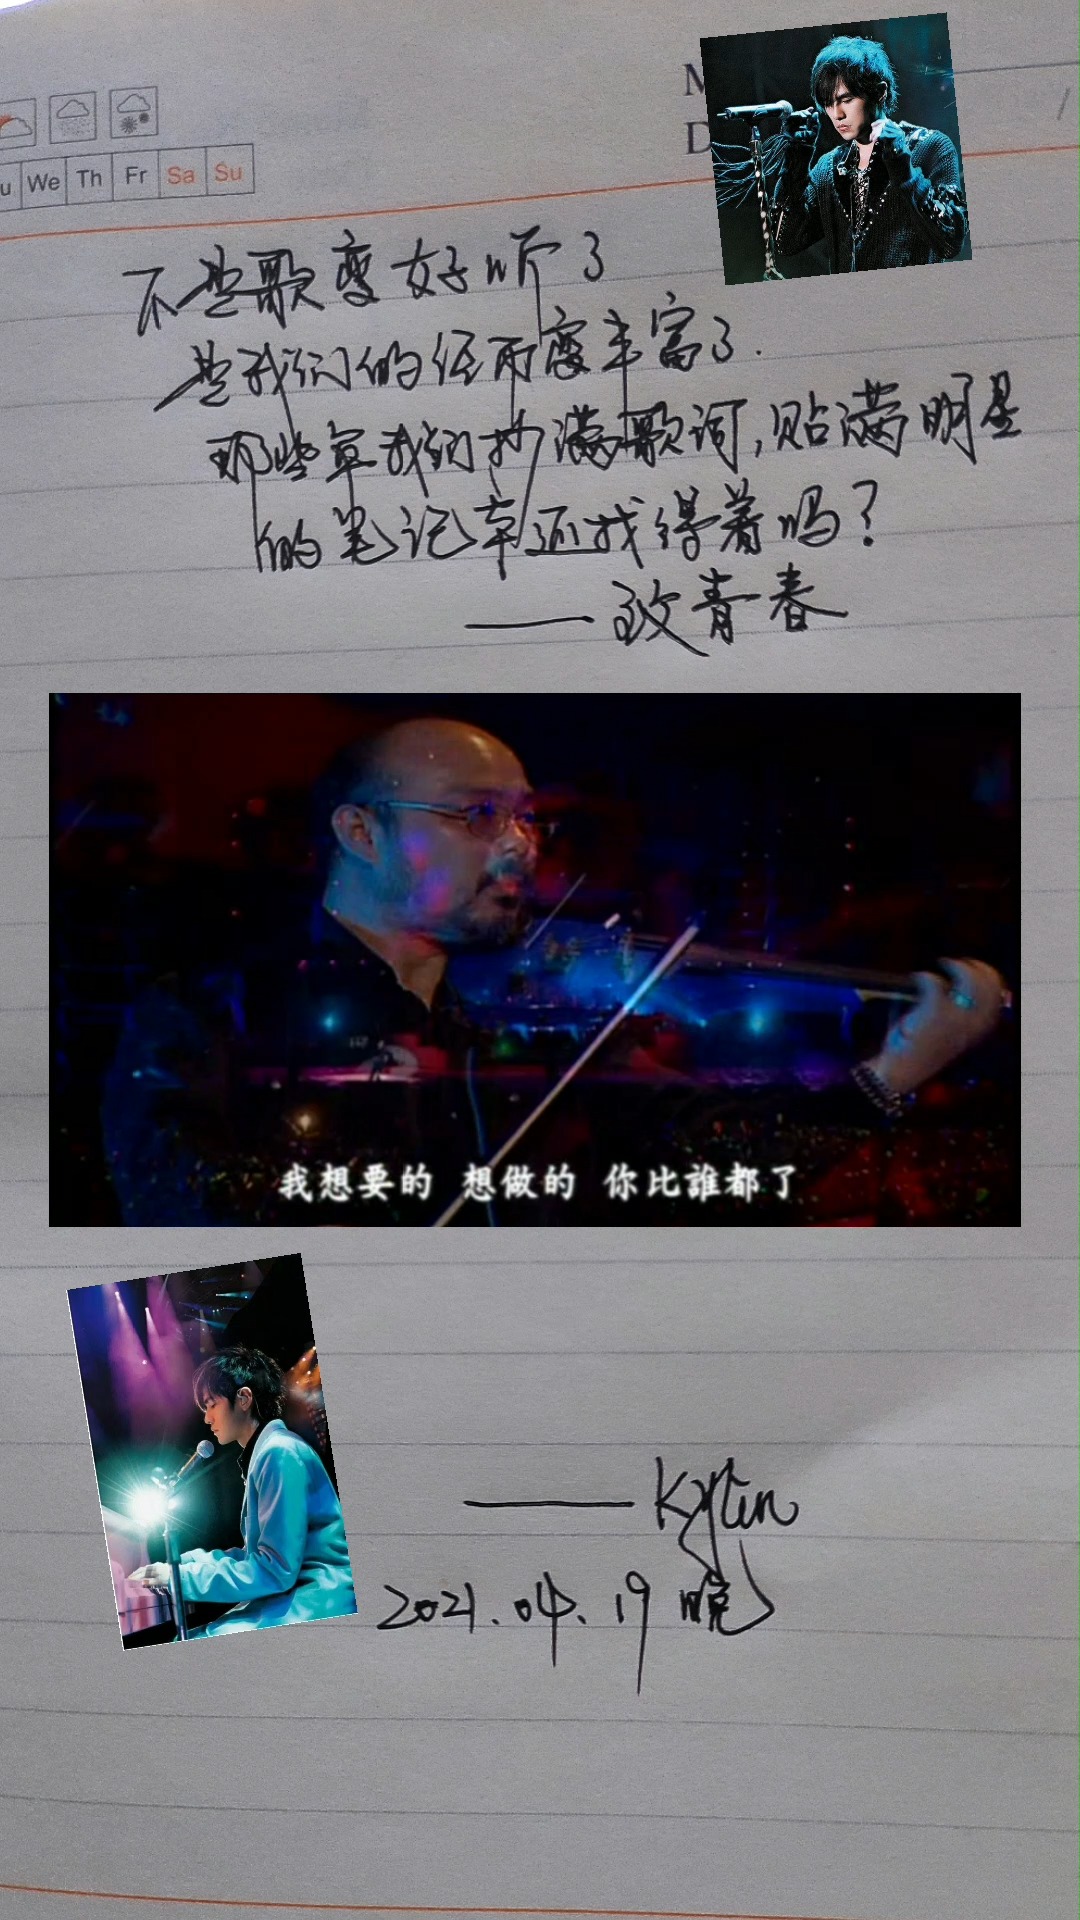 We Th Fr Sa Su
不是歌变好听了
是我们的经历变丰富了.
那些年我们抄满歌词,贴满明星
的笔记本还找得着吗?
——致青春
我想要的 想做的 你比誰都了
——Kylin
2021.04.19 晚